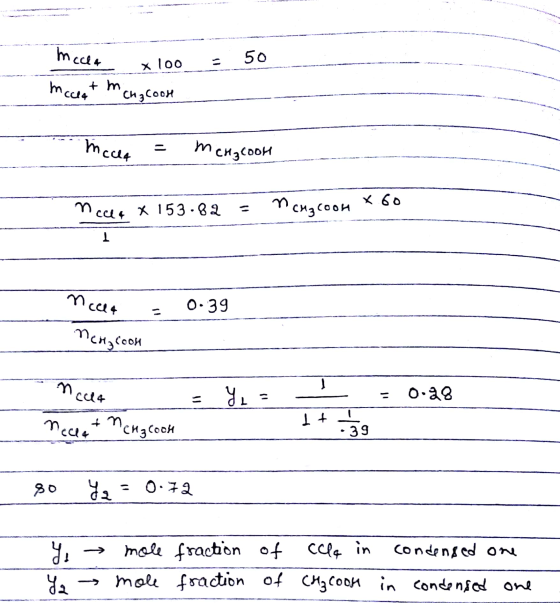 m_CCl4 / (m_CCl4 + m_CH3COOH) × 100 = 50
m_CCl4 = m_CH3COOH
n_CCl4 / 1 × 153.82 = n_CH3COOH × 60
n_CCl4 / n_CH3COOH = 0.39
n_CCl4 / (n_CCl4 + n_CH3COOH) = y1 = 1 / (1 + 1/.39) = 0.28
so y2 = 0.72
y1 → mole fraction of CCl4 in condensed one
y2 → mole fraction of CH3COOH in condensed one